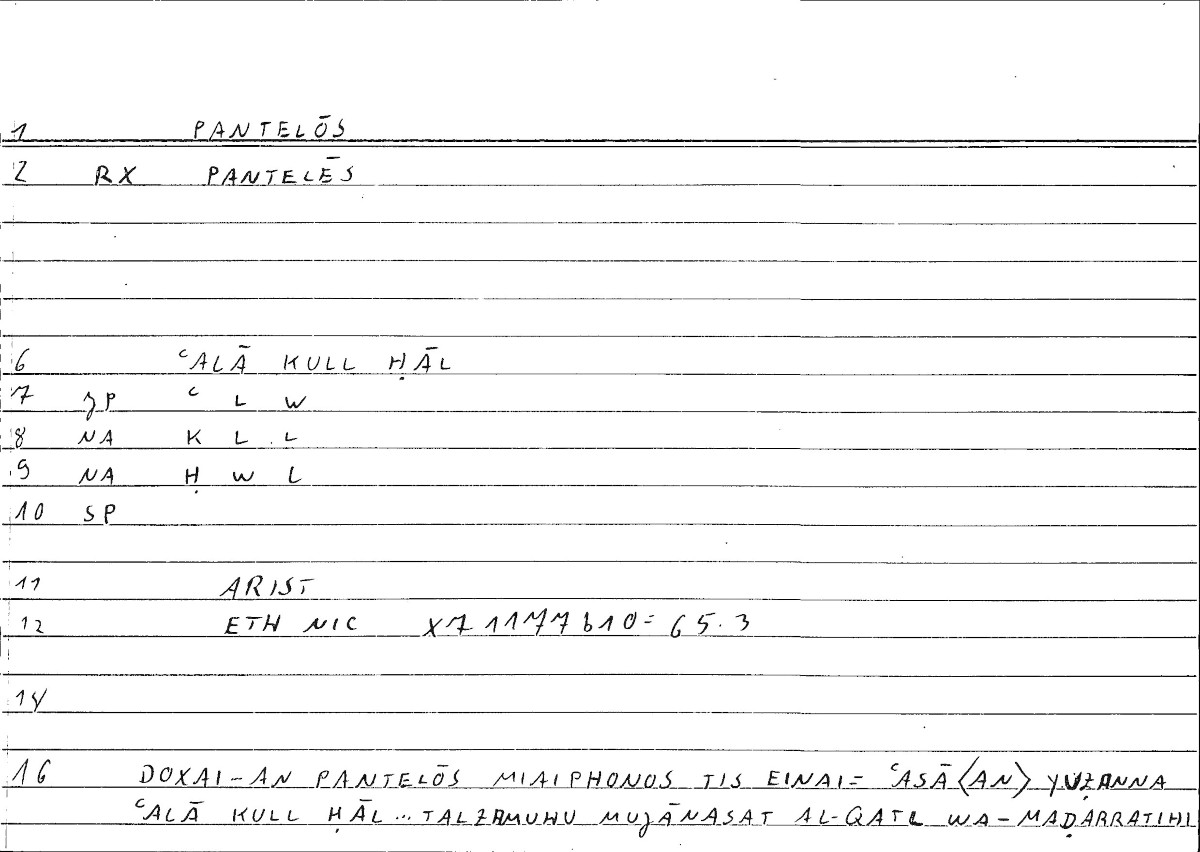 1 PANTELŌS
2 RX PANTELĒS
6 ʿALĀ KULL ḤĀL
7 JP ʿ L W
8 NA K L L
9 NA Ḥ W L
10 SP
11 ARIST
12 ETH NIC X7 1177b10=65.3
14
16 DOXAI-AN PANTELŌS MIAIPHONOS TIS EINAI= ʿASĀ⟨AN⟩ YUẒANNA
ʿALĀ KULL ḤĀL...TALZAMUHU MUJĀNASAT AL-QATL WA-MAḌARRATIHI